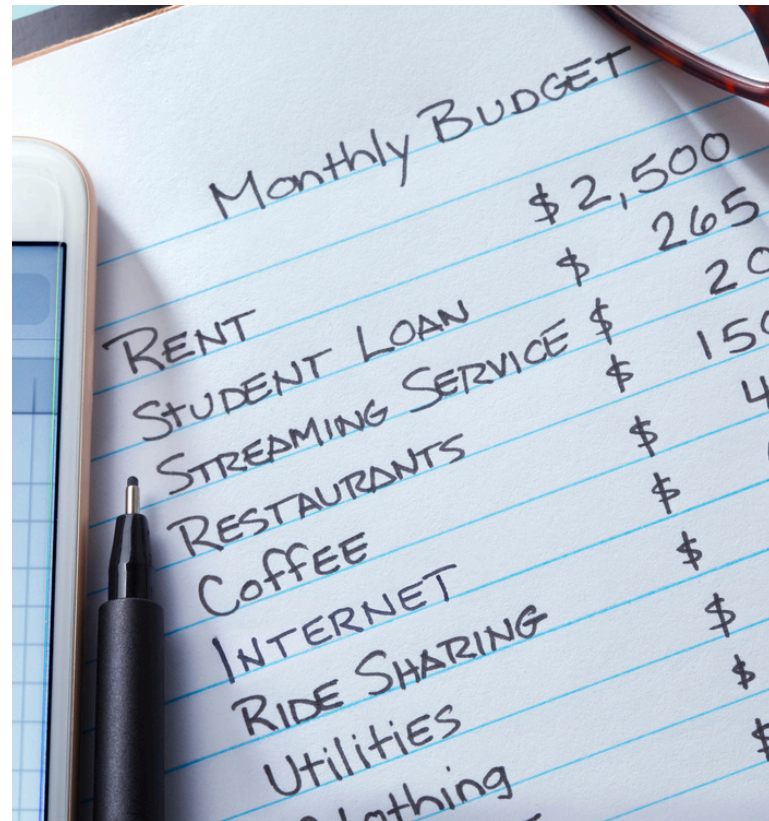 Monthly BUDGET
RENT $ 2,500
STUDENT LOAN $ 265
STREAMING SERVICE $ 20
RESTAURANTS $ 150
COFFEE $ 4
INTERNET $
RIDE SHARING $
UTILITIES $
Clothing $
$